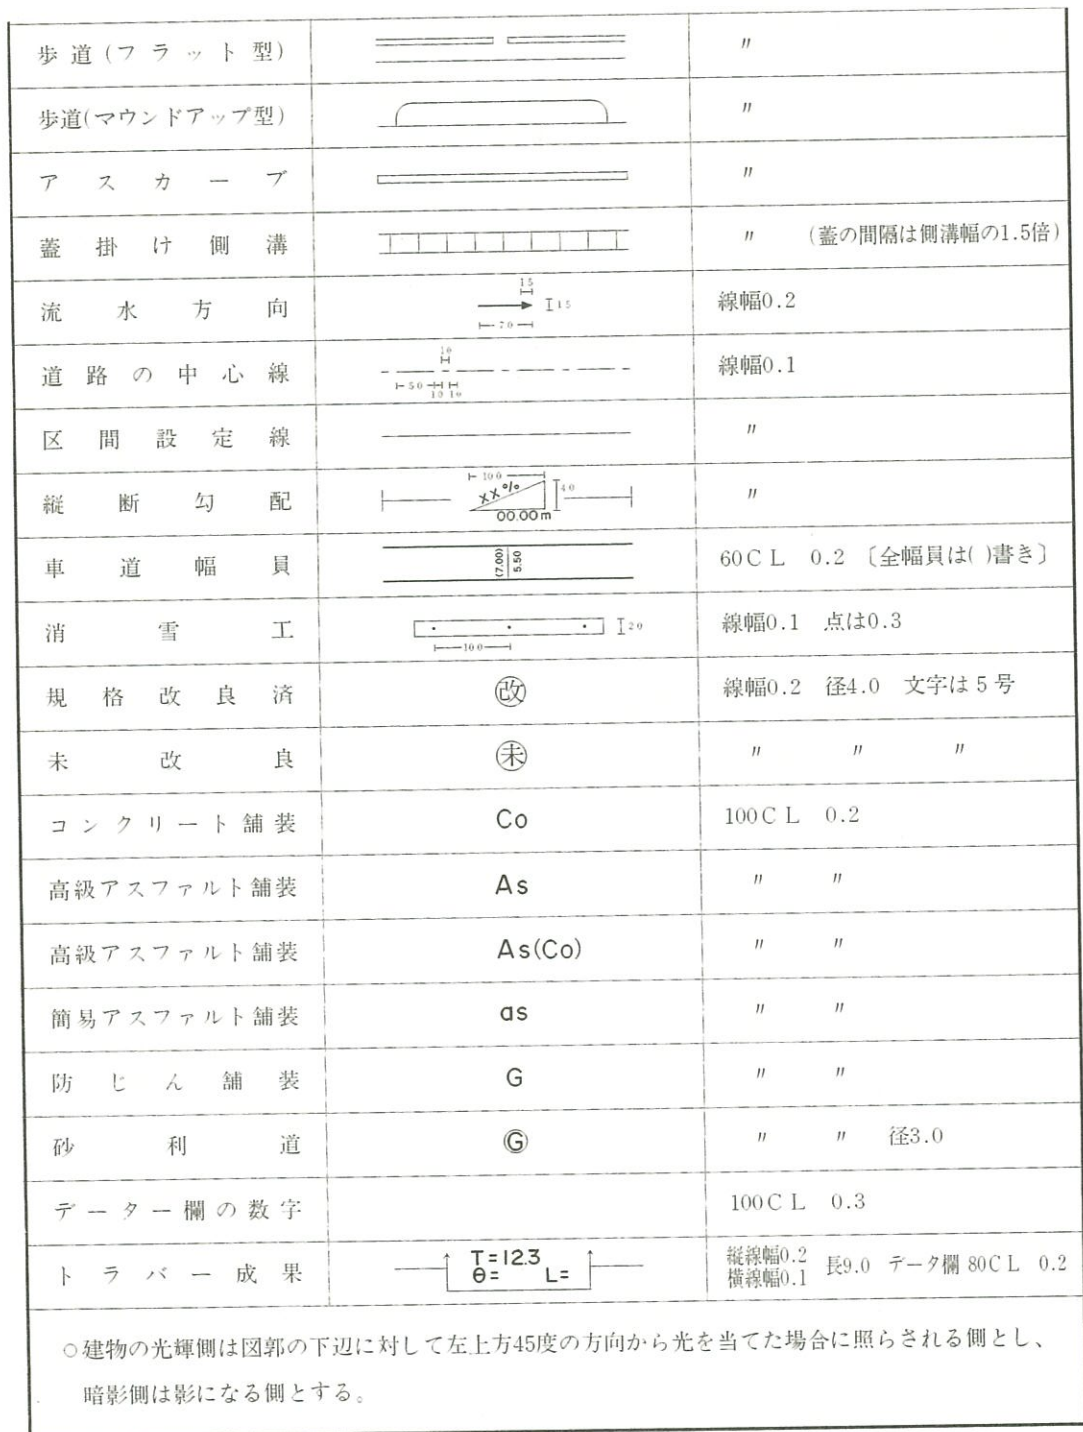 歩道(フラット型) 〃
歩道(マウンドアップ型) 〃
アスカーブ 〃
蓋掛け側溝 〃 (蓋の間隔は側溝幅の1.5倍)
流水方向 1.5 1.5 7.0 線幅0.2
道路の中心線 1.0 5.0 1.0 1.0 線幅0.1
区間設定線 〃
縦断勾配 10.0 XX% 4.0 00.00m 〃
車道幅員 (7.00) 5.50 60CL 0.2 〔全幅員は( )書き〕
消雪工 2.0 10.0 線幅0.1 点は0.3
規格改良済 改 線幅0.2 径4.0 文字は5号
未改良 未 〃 〃 〃
コンクリート舗装 Co 100CL 0.2
高級アスファルト舗装 As 〃 〃
高級アスファルト舗装 As(Co) 〃 〃
簡易アスファルト舗装 as 〃 〃
防じん舗装 G 〃 〃
砂利道 Ⓖ 〃 〃 径3.0
データー欄の数字 100CL 0.3
トラバー成果 T=12.3 縦線幅0.2
θ= L= 横線幅0.1 長9.0 データ欄 80CL 0.2
○建物の光輝側は図郭の下辺に対して左上方45度の方向から光を当てた場合に照らされる側とし、
暗影側は影になる側とする。